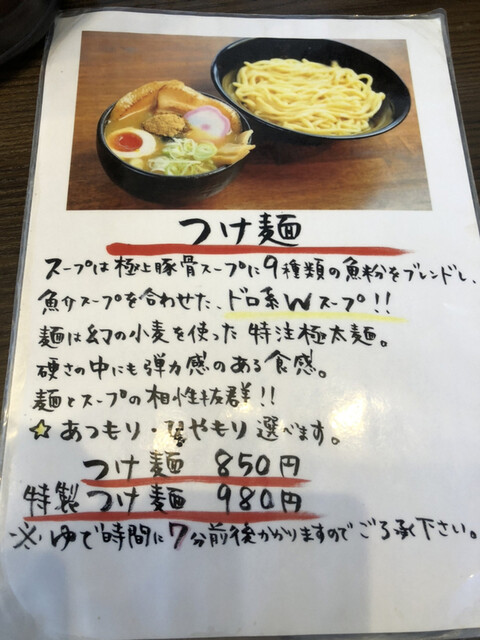 つけ麺
スープは極上豚骨スープに9種類の魚粉をブレンドし、
魚介スープを合わせた、ドロ系Wスープ!!
麺は幻の小麦を使った特注極太麺。
硬さの中にも弾力感のある食感。
麺とスープの相性抜群!!
☆あつもり・ひやもり選べます。
つけ麺 850円
特製つけ麺 980円
※ゆで時間に7分前後かかりますのでご了承下さい。